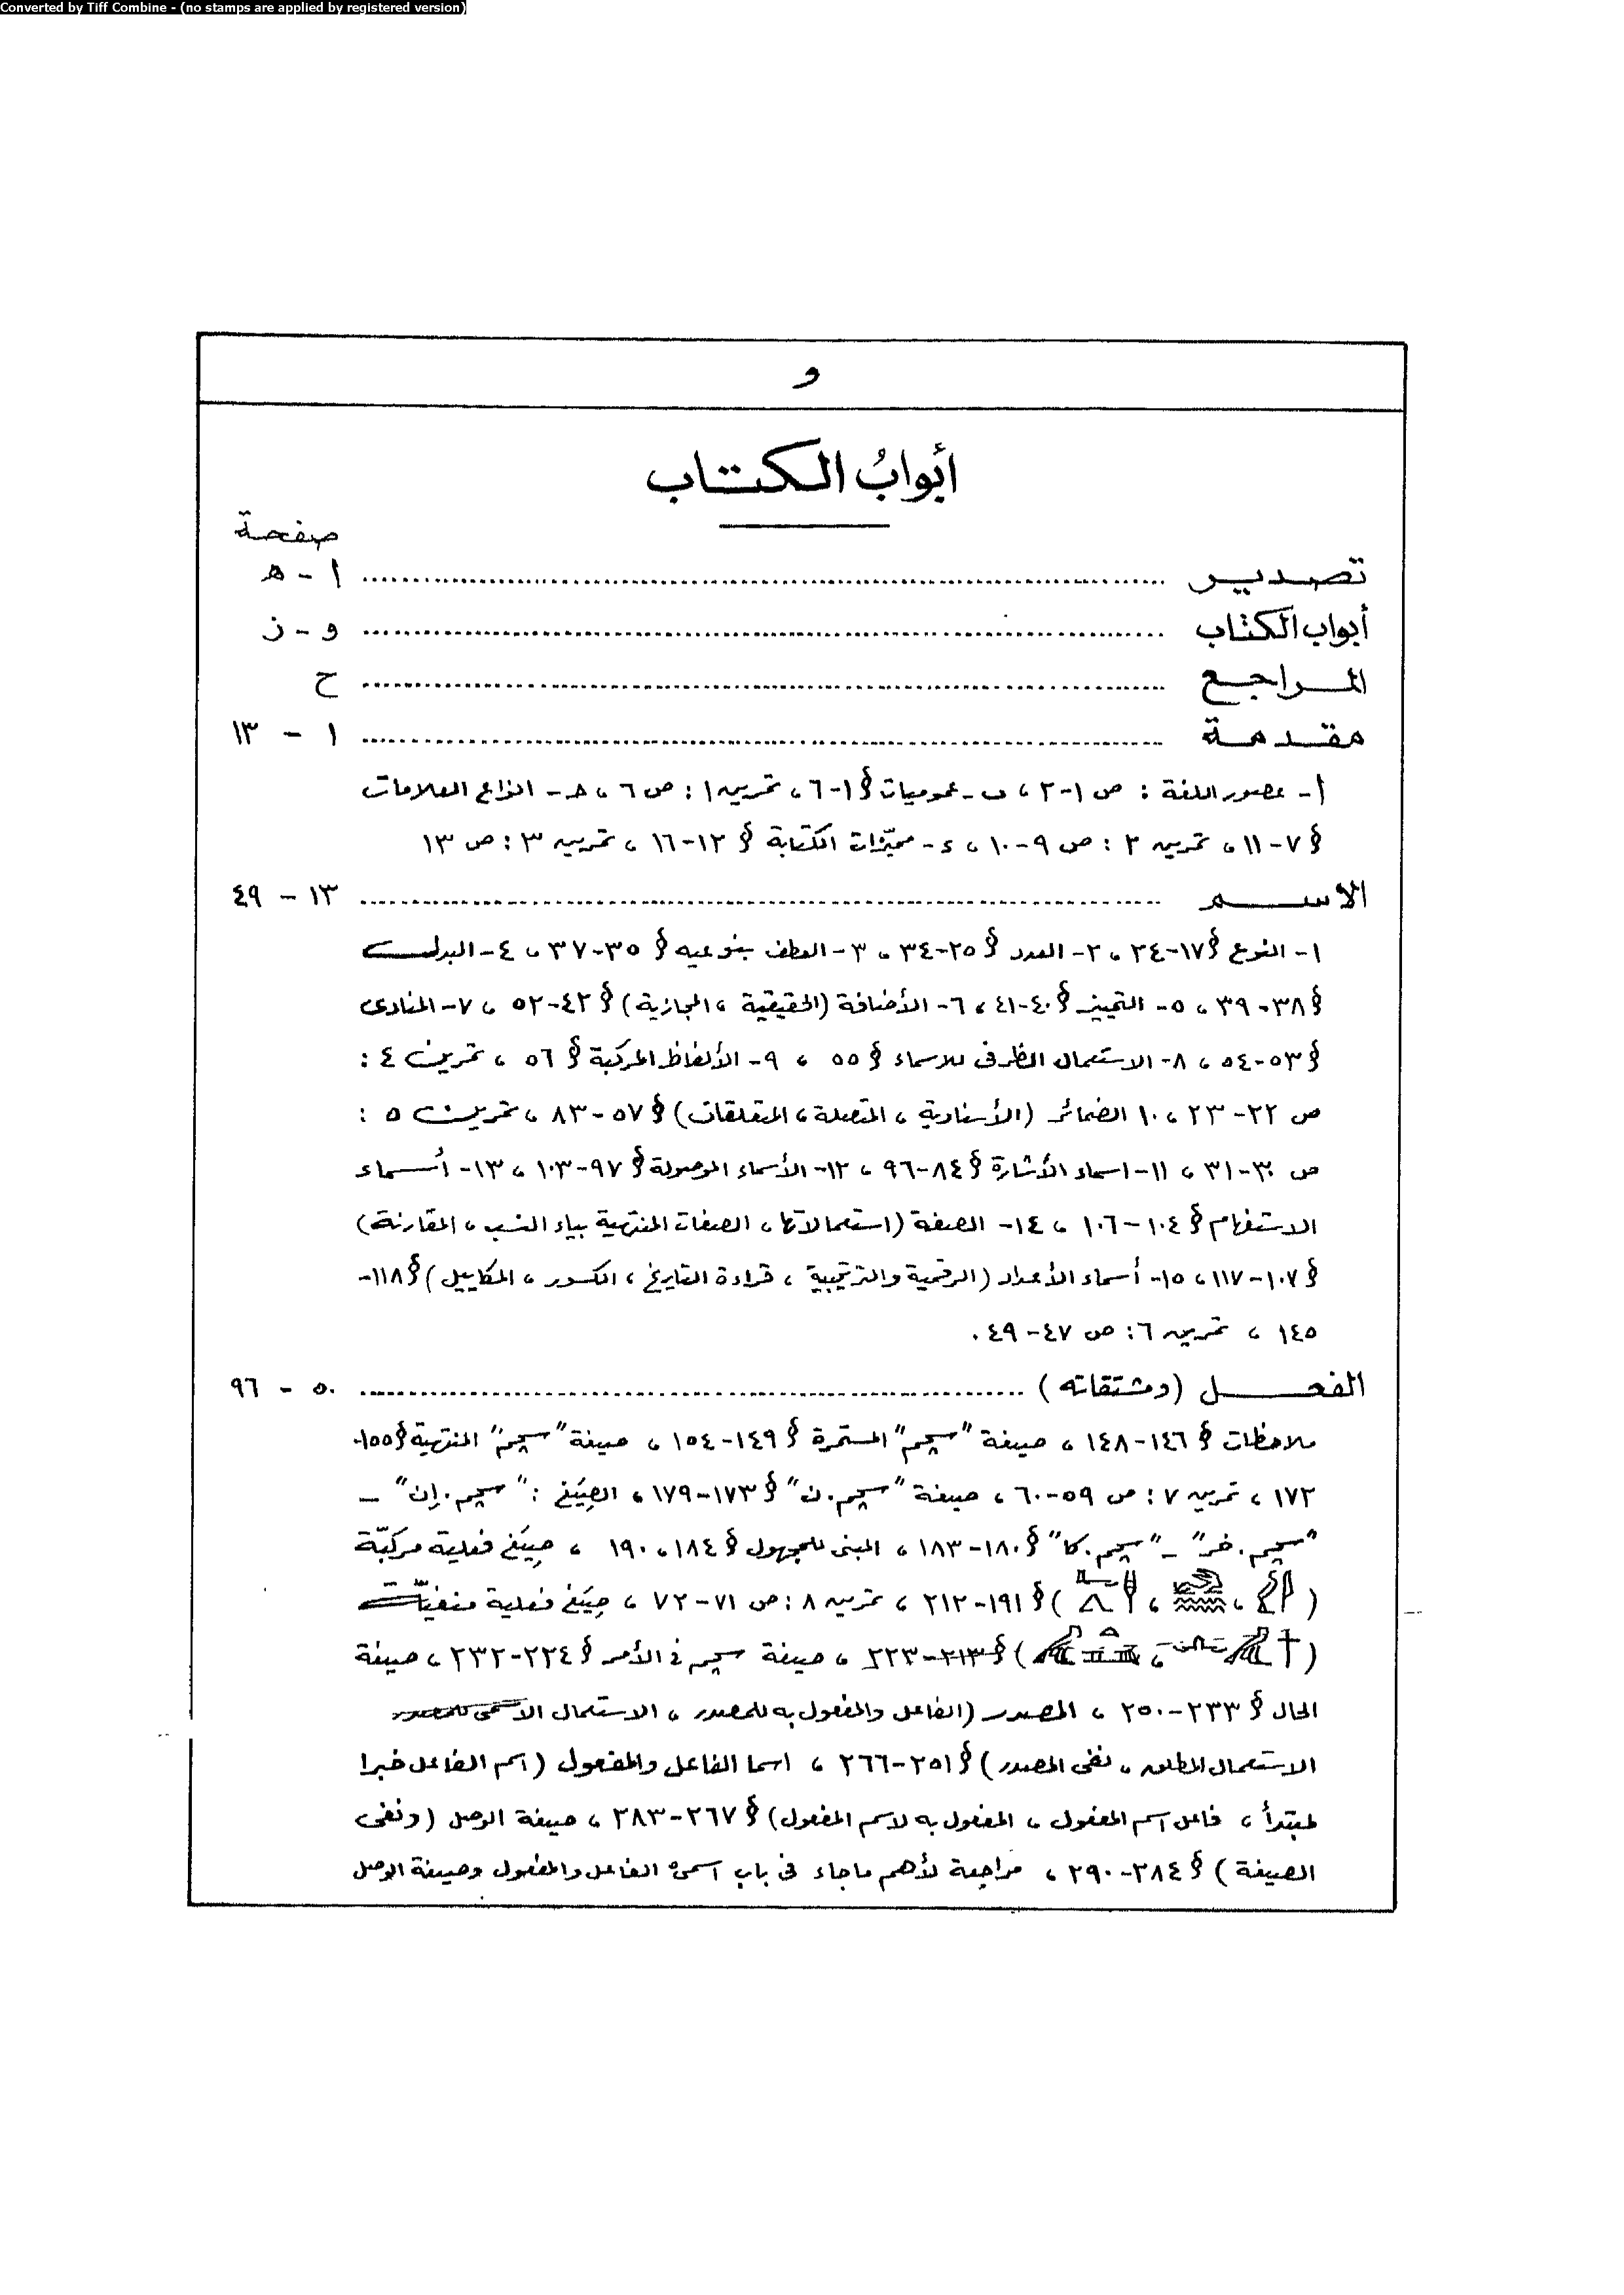 Converted by Tiff Combine - (no stamps are applied by registered version)
و
أبوابُ الكتاب
صفحة
تصدير ................ أ - ه
أبواب الكتاب ................ و - ز
المراجع ................ ح
مقدمة ................ ١ - ١٣
أ- عصور اللغة : ص ١-٢ ، ب- عموميات § ١-٦ ، تمرين ١ : ص ٦ ، ح- انواع العلامات
§ ٧-١١ ، تمرين ٢ : ص ٩-١٠ ، ء- مميّزات الكتابة § ١٢-١٦ ، تمرين ٣ : ص ١٣
الاسم ................ ١٣ - ٤٩
١- النوع § ١٧-٢٤ ، ٢- العدد § ٢٥-٣٤ ، ٣- العطف بنوعيه § ٣٥-٣٧ ، ٤- البدل
§ ٣٨-٣٩ ، ٥- التمييز § ٤٠-٤١ ، ٦- الأضافة (الحقيقية ، المجازية) § ٤٢-٥٢ ، ٧- المنادى
§ ٥٣-٥٤ ، ٨- الاستعمال الظرفى للاسماء § ٥٥ ، ٩- الألفاظ المركبة § ٥٦ ، تمرين ٤ :
ص ٢٢-٢٣ ، ١٠ الضمائر (الأسنادية ، المتصلة ، المتعلقات) § ٥٧-٨٣ ، تمرين ٥ :
ص ٣٠-٣١ ، ١١- اسماء الأشارة § ٨٤-٩٦ ، ١٢- الأسماء الموصولة § ٩٧-١٠٣ ، ١٣- أسماء
الاستفهام § ١٠٤-١٠٦ ، ١٤- الصفة (استعمالاتها ، الصفات المنتهية بياء النسب ، المقارنة)
§ ١٠٧-١١٧ ، ١٥- أسماء الأعداد (الرقمية والترتيبية ، قراءة التاريخ ، الكسور ، المكاييل) § ١١٨-
١٤٥ ، تمرين ٦ : ص ٤٧-٤٩ .
الفعل (ومشتقاته) ................ ٥٠ - ٩٦
ملاحظات § ١٤٦-١٤٨ ، صيغة "سچم" المستمرة § ١٤٩-١٥٤ ، صيغة "سچم" المنتهية § ١٥٥-
١٧٢ ، تمرين ٧ : ص ٥٩-٦٠ ، صيغة "سچم.ن" § ١٧٣-١٧٩ ، الصِيَغ : "سچم.إن" -
"سچم.خر" - "سچم.كا" § ١٨٠-١٨٣ ، المبنى للمجهول § ١٨٤ ، ١٩٠ ، صِيَغ فعلية مركبّة
( ، ، ) § ١٩١-٢١٢ ، تمرين ٨ : ص ٧١-٧٢ ، صِيَغ فعلية منفيّة
( ، ) § ٢١٣-٢٢٣ ، صيغة سچم فى الأمر § ٢٢٤-٢٣٢ ، صيغة
الحال § ٢٣٣-٢٥٠ ، المصدر (الفاعل والمفعول به للمصدر ، الاستعمال الاسمى للمصدر
الاستعمال المطلق ، نفى المصدر) § ٢٥١-٢٦٦ ، اسما الفاعل والمفعول (اسم الفاعل خبرا
لمبتدأ ، فاعل اسم المفعول ، المفعول به لاسم المفعول) § ٢٦٧-٢٨٣ ، صيغة الوصل (ونفى
الصيغة) § ٢٨٤-٢٩٠ ، مراجعة لأهم ماجاء فى باب اسمى الفاعل والمفعول وصيغة الوصل